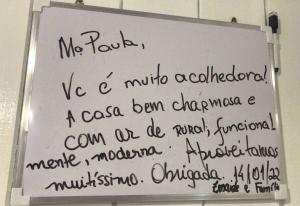 Ma Paula,
Vc é muito acolhedora!
A casa bem charmosa e
com ar de rural, funcional
mente, moderna. Aproveitamos
muitíssimo. Obrigada. 14/01/22
e Família